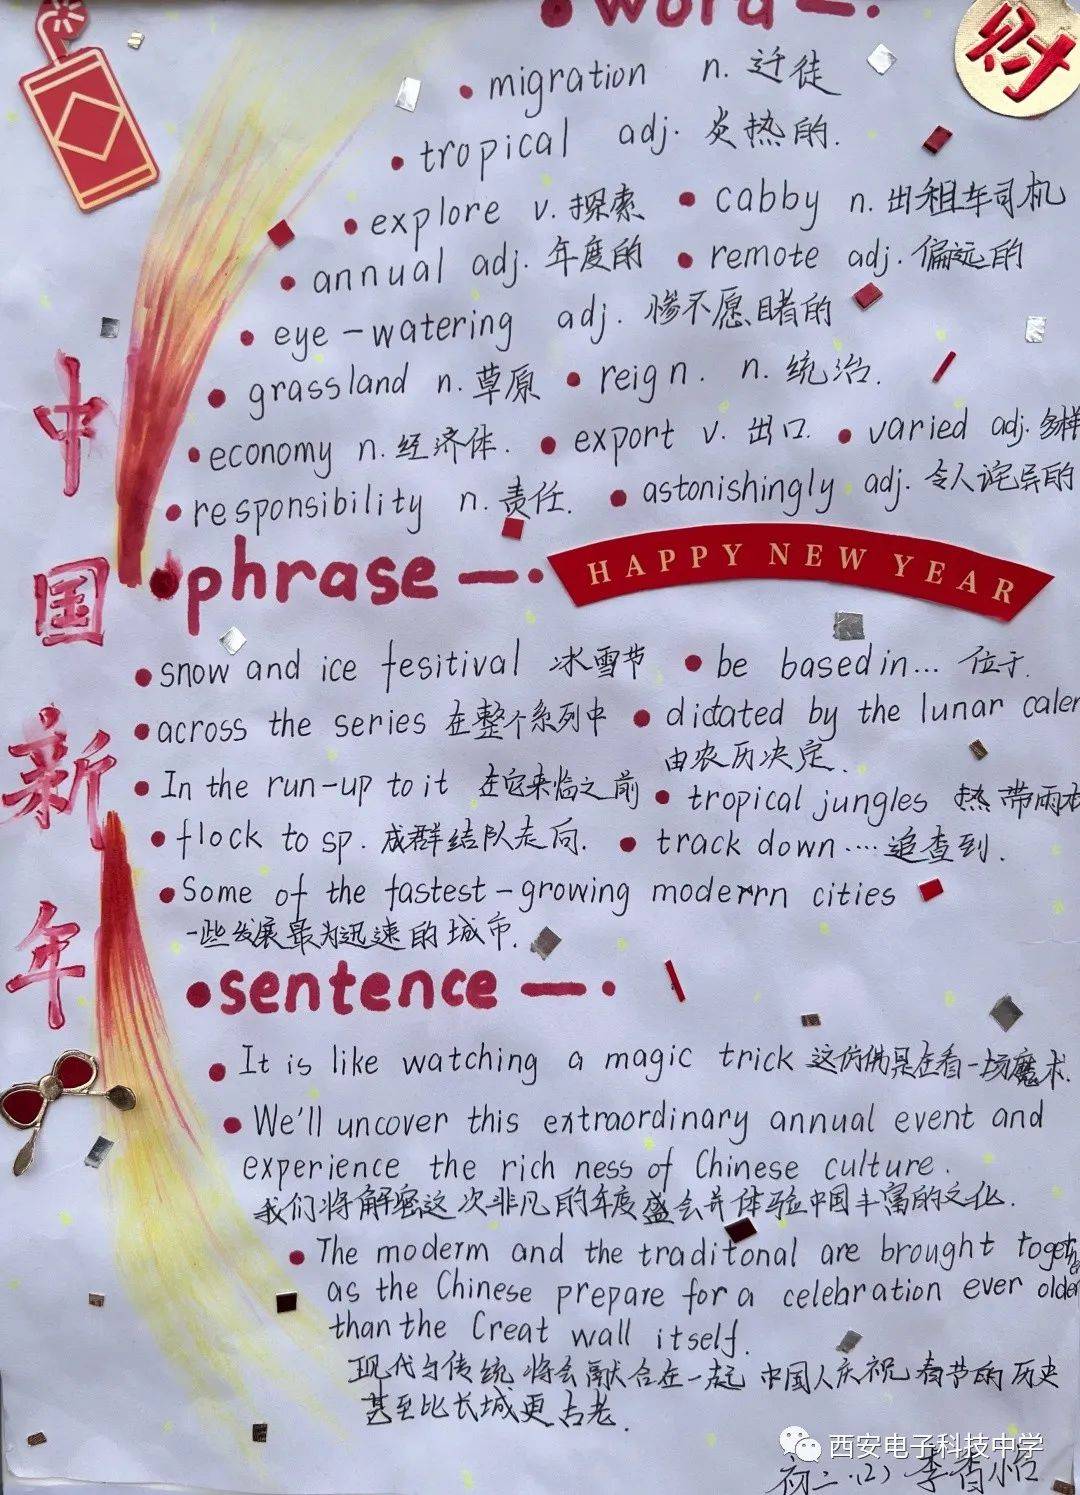 word
财
migration n. 迁徒
tropical adj. 炎热的.
explore v. 探索 cabby n. 出租车司机
annual adj. 年度的 remote adj. 偏远的
eye-watering adj. 惨不愿睹的
grassland n. 草原 reign. n. 统治.
economy n. 经济体. export v. 出口. varied adj. 多样
responsibility n. 责任. astonishingly adj. 令人诧异的
phrase
HAPPY NEW YEAR
snow and ice fesitival 冰雪节 be based in... 位于.
across the series 在整个系列中 dictated by the lunar calen
由农历决定.
In the run-up to it 在它来临之前 tropical jungles 热带雨
flock to sp. 成群结队走向. track down.... 追查到.
Some of the fastest-growing moderrn cities
一些发展最为迅速的城市.
sentence
It is like watching a magic trick 这仿佛是在看一场魔术.
We'll uncover this extraordinary annual event and
experience the richness of Chinese culture.
我们将解密这次非凡的年度盛会并体验中国丰富的文化.
The moderm and the traditonal are brought together
as the Chinese prepare for a celebration ever older
than the Creat wall itself.
现代与传统将会融合在一起 中国人庆祝春节的历史
甚至比长城更古老.
中国新年
西安电子科技中学
初二.(2) 李香怡